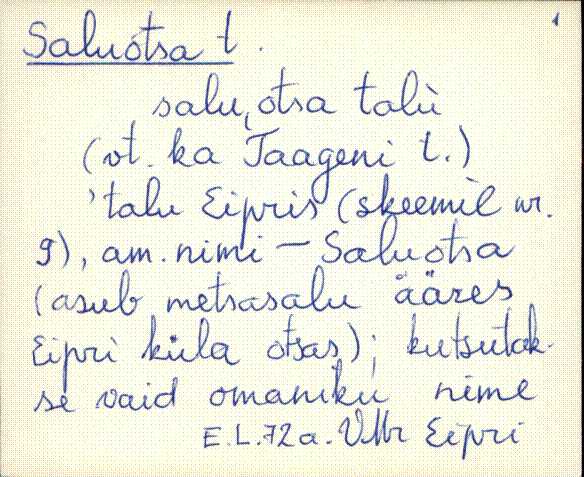 1
Saluotsa t.
salu,otsa talù
(vt. ka Taageni t.)
'talu Eipris (skeemil nr.
9), am. nimi – Saluotsa
(asub metsasalu ääres
Eipri küla otsas); kutsutak-
se vaid omaniku nime
E.L.72a. VMr Eipri